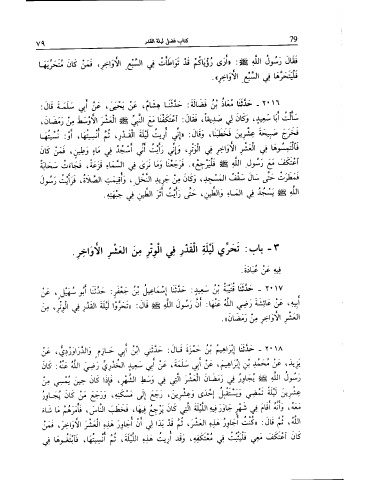 ٧٩ كتاب فضل ليلة القدر 79
فَقَالَ رَسُولُ اللَّهِ ﷺ: «أَرَى رُؤْيَاكُمْ قَدْ تَوَاطَأَتْ فِي السَّبْعِ الأَوَاخِرِ، فَمَنْ كَانَ مُتَحَرِّيَهَا
فَلْيَتَحَرَّهَا فِي السَّبْعِ الأَوَاخِرِ».
٢٠١٦ - حَدَّثَنَا مُعَاذُ بْنُ فَضَالَةَ: حَدَّثَنَا هِشَامٌ، عَنْ يَحْيَى، عَنْ أَبِي سَلَمَةَ قَالَ:
سَأَلْتُ أَبَا سَعِيدٍ، وَكَانَ لِي صَدِيقاً، فَقَالَ: اعْتَكَفْنَا مَعَ النَّبِيِّ ﷺ الْعَشْرَ الأَوْسَطَ مِنْ رَمَضَانَ،
فَخَرَجَ صَبِيحَةَ عِشْرِينَ فَخَطَبَنَا، وَقَالَ: «إِنِّي أُرِيتُ لَيْلَةَ الْقَدْرِ، ثُمَّ أُنْسِيتُهَا، أَوْ: نُسِّيتُهَا،
فَالْتَمِسُوهَا فِي الْعَشْرِ الأَوَاخِرِ فِي الْوِتْرِ، وَإِنِّي رَأَيْتُ أَنِّي أَسْجُدُ فِي مَاءٍ وَطِينٍ، فَمَنْ كَانَ
اعْتَكَفَ مَعَ رَسُولِ اللَّهِ ﷺ فَلْيَرْجِعْ». فَرَجَعْنَا وَمَا نَرَى فِي السَّمَاءِ قَزَعَةً، فَجَاءَتْ سَحَابَةٌ
فَمَطَرَتْ حَتَّى سَالَ سَقْفُ الْمَسْجِدِ، وَكَانَ مِنْ جَرِيدِ النَّخْلِ، وَأُقِيمَتِ الصَّلَاةُ، فَرَأَيْتُ رَسُولَ
اللَّهِ ﷺ يَسْجُدُ فِي الْمَاءِ وَالطِّينِ، حَتَّى رَأَيْتُ أَثَرَ الطِّينِ فِي جَبْهَتِهِ.
٣ - باب: تَحَرِّي لَيْلَةِ الْقَدْرِ فِي الْوِتْرِ مِنَ الْعَشْرِ الأَوَاخِرِ.
فِيهِ عَنْ عُبَادَةَ.
٢٠١٧ - حَدَّثَنَا قُتَيْبَةُ بْنُ سَعِيدٍ: حَدَّثَنَا إِسْمَاعِيلُ بْنُ جَعْفَرٍ: حَدَّثَنَا أَبُو سُهَيْلٍ، عَنْ
أَبِيهِ، عَنْ عَائِشَةَ رَضِيَ اللَّهُ عَنْهَا: أَنَّ رَسُولَ اللَّهِ ﷺ قَالَ: «تَحَرَّوْا لَيْلَةَ الْقَدْرِ فِي الْوِتْرِ، مِنَ
الْعَشْرِ الأَوَاخِرِ مِنْ رَمَضَانَ».
٢٠١٨ - حَدَّثَنَا إِبْرَاهِيمُ بْنُ حَمْزَةَ قَالَ: حَدَّثَنِي ابْنُ أَبِي حَازِمٍ وَالدَّرَاوَرْدِيُّ، عَنْ
يَزِيدَ، عَنْ مُحَمَّدِ بْنِ إِبْرَاهِيمَ، عَنْ أَبِي سَلَمَةَ، عَنْ أَبِي سَعِيدٍ الْخُدْرِيِّ رَضِيَ اللَّهُ عَنْهُ: كَانَ
رَسُولُ اللَّهِ ﷺ يُجَاوِرُ فِي رَمَضَانَ الْعَشْرَ الَّتِي فِي وَسَطِ الشَّهْرِ، فَإِذَا كَانَ حِينَ يُمْسِي مِنْ
عِشْرِينَ لَيْلَةً تَمْضِي، وَيَسْتَقْبِلُ إِحْدَى وَعِشْرِينَ، رَجَعَ إِلَى مَسْكَنِهِ، وَرَجَعَ مَنْ كَانَ يُجَاوِرُ
مَعَهُ، وَأَنَّهُ أَقَامَ فِي شَهْرٍ جَاوَرَ فِيهِ اللَّيْلَةَ الَّتِي كَانَ يَرْجِعُ فِيهَا، فَخَطَبَ النَّاسَ، فَأَمَرَهُمْ مَا شَاءَ
اللَّهُ، ثُمَّ قَالَ: «كُنْتُ أُجَاوِرُ هَذِهِ الْعَشْرَ، ثُمَّ قَدْ بَدَا لِي أَنْ أُجَاوِرَ هَذِهِ الْعَشْرَ الأَوَاخِرَ، فَمَنْ
كَانَ اعْتَكَفَ مَعِي فَلْيَثْبُتْ فِي مُعْتَكَفِهِ، وَقَدْ أُرِيتُ هَذِهِ اللَّيْلَةَ، ثُمَّ أُنْسِيتُهَا، فَابْتَغُوهَا فِي